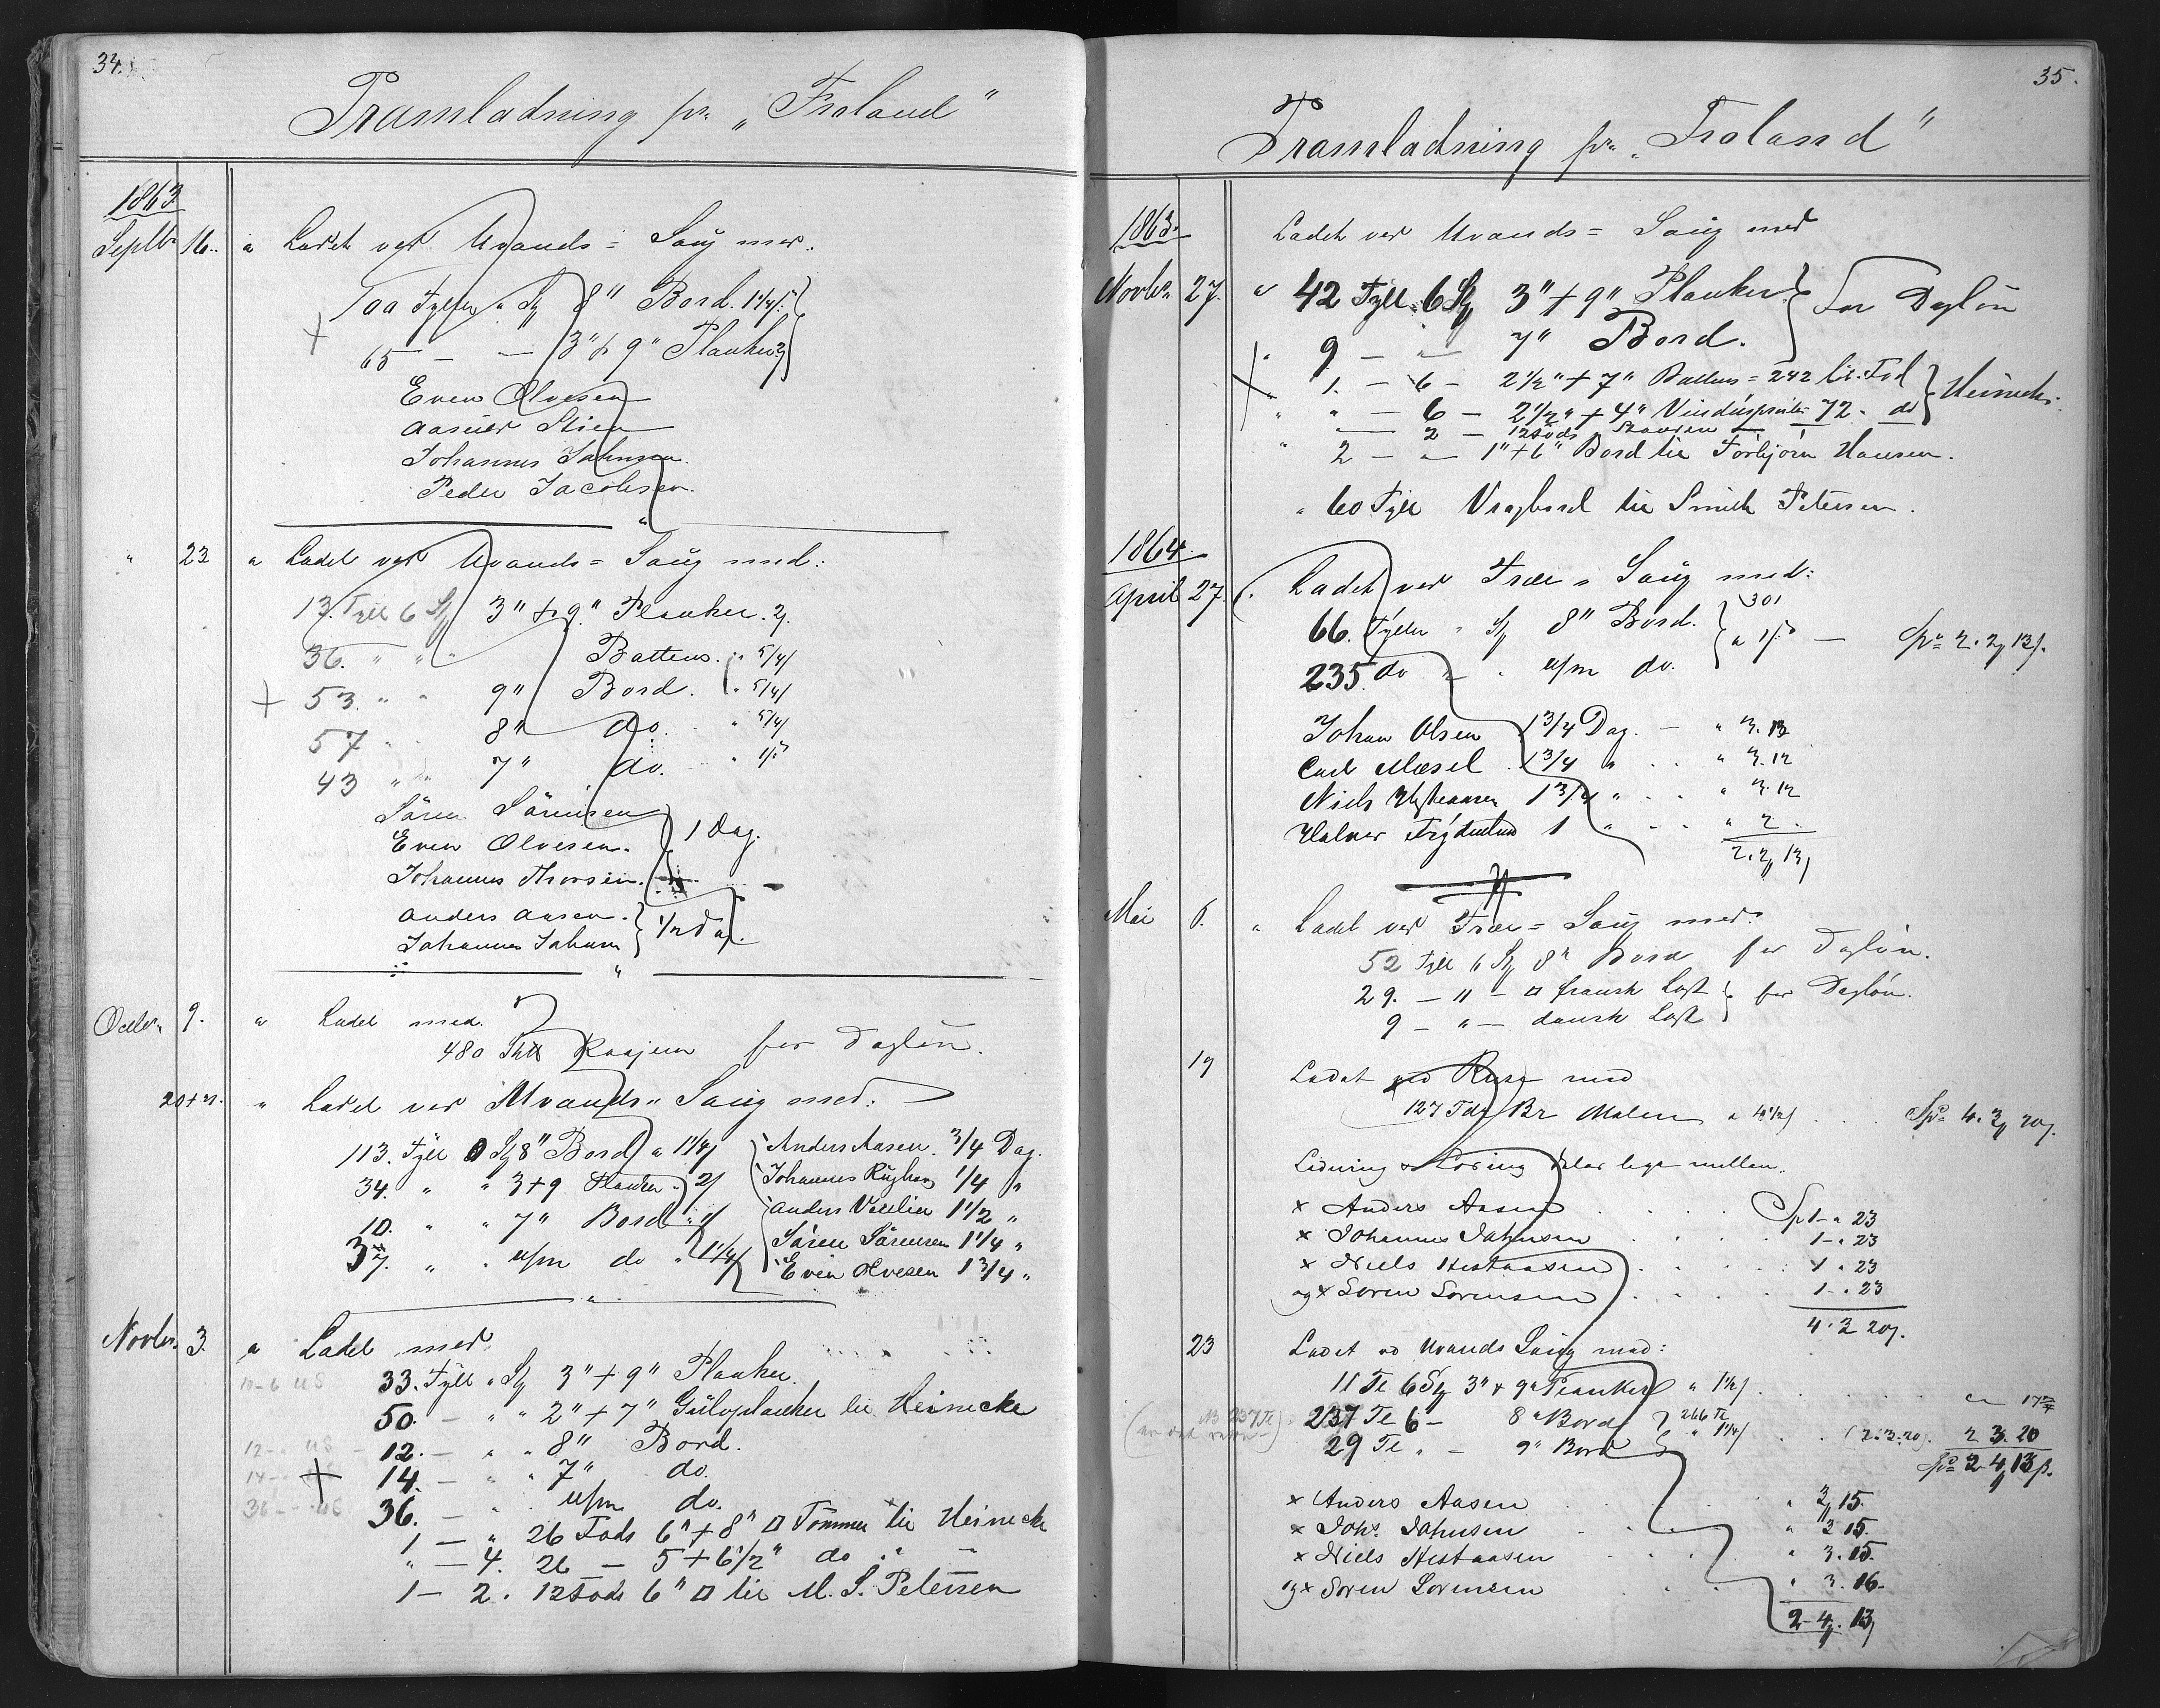 34.
Pramladning pr. „Froland"
1863
Septbr 16. " Ladet ved Uvands = Saug med.
100 Tylter " St 8" Bord. 1 1/4/
+ 65 — — 3" + 9" Planker 2/
Even Olvesen
Johannes Johnsen.
Peder Jacobsen.
" 23 " Ladet ved Uvands = Saug med:
13. Tylt 6 St 3" + 9" Planker. 2/.
36. " " " Battens. " 5/4/
+ 53. " " 9" Bord. " 5/4/
57 " " 8" do. " 5/4/
43 " " 7" do. "
Sören Sörensen
Even Olvesen. } 1 Dag.
Johannes Thorsen.
Anders Aasen. } 1/2 Dag.
Johannes Johnsen
Octbr. 9. " Ladet med.
480 Stk Raajern for Daglön.
20+21. " Ladet ved Uvands " Saug med:
113. Tylt 0 St 8" Bord " 1 1/4/ Anders Aasen. 3/4 Dag.
34. " " 3+9 Planker " 2/ Johannes 1/4 "
10. " " 7" Bord " 1/ Anders 1 1/2 "
37. " " u/m do " 1 1/4/ Sören Sörensen 1 1/4 "
Even Olvesen 1 3/4 "
Novbr. 3. " Ladet med.
33. Tylt " St 3" + 9" Planker.
50. — " " 2" + 7" Gulvplanker til Heinecke
12. — " " 8" Bord.
+ 14. — " " 7" do.
36. — " u/m do.
1 — " 26 Fods 6" + 8" □ Tömmer til Heinecke
" — 4. 26 — 5 + 6 1/2" do " "
1 — 2. 12 Fods 6" □ til M. S. Petersen
35.
Pramladning pr. „Froland"
1863. Ladet ved Uvands = Saug med
Novbr. 27. " 42 Tylt 6 St 3" + 9" Planker } for Daglön
" 9 — " — 7" Bord.
+ " 1. — 6 — 2 1/2" + 7" Battens = 242 lb. Fod } Heinecke.
" " — 6 — 2 1/2" + 4" 72. do
" — 2 — 12 Fods
" 2 — " — 1" + 6" Bord til Torbjörn Hansen.
" 60 Tylt Vragbord til Smith Petersen.
1864.
April 27. Ladet ved Træe = Saug med:
66. Tylter " St 8" Bord. } 301
235. do " " u/m do. — Spd 2. 2 13/.
Johan Olsen 1 3/4 Dag. — " 3. 12
Carl 1 3/4 " . . " 3. 12
Niels Hestaasen 1 3/4 " . . " 3. 12
Halvor 1 " . . " 2.
2. 2 13/
Mai 6. " Ladet ved Træe = Saug med:
52 Tylt 6 St 8" Bord for Daglön.
29. — " — □ fransk Last } for Daglön.
9 — " — dansk Last
19 Ladet ved med
127 Br Malm " . . . Spd 4. 3 20/.
mellem.
x Anders Aasen . . . . Sp 1 - " 23
x Johannes Johnsen . . . 1 - " 23
x Niels Hestaasen . . . . 1 " 23
og x Soren Sorensen . . . 1 - " 23
4. 3 20/.
23 Ladet vd Uvands Saug med:
11 Te 6 St 3" + 9" Planker " 1 1/2/ . . .
237 Te 6 — 8" Bord } 266 Te
29 Te " — 9" Bord " 1 1/4/ . . (2.3.20) 2 3. 20
Spd 2 4 13/.
x Anders Aasen . . . " 3 15.
x Johs. Johnsen . . . " 3 15.
x Niels Hestaasen . . . " 3. 15.
og x Soren Sorensen . . " 3. 16.
2 - 4. 13/